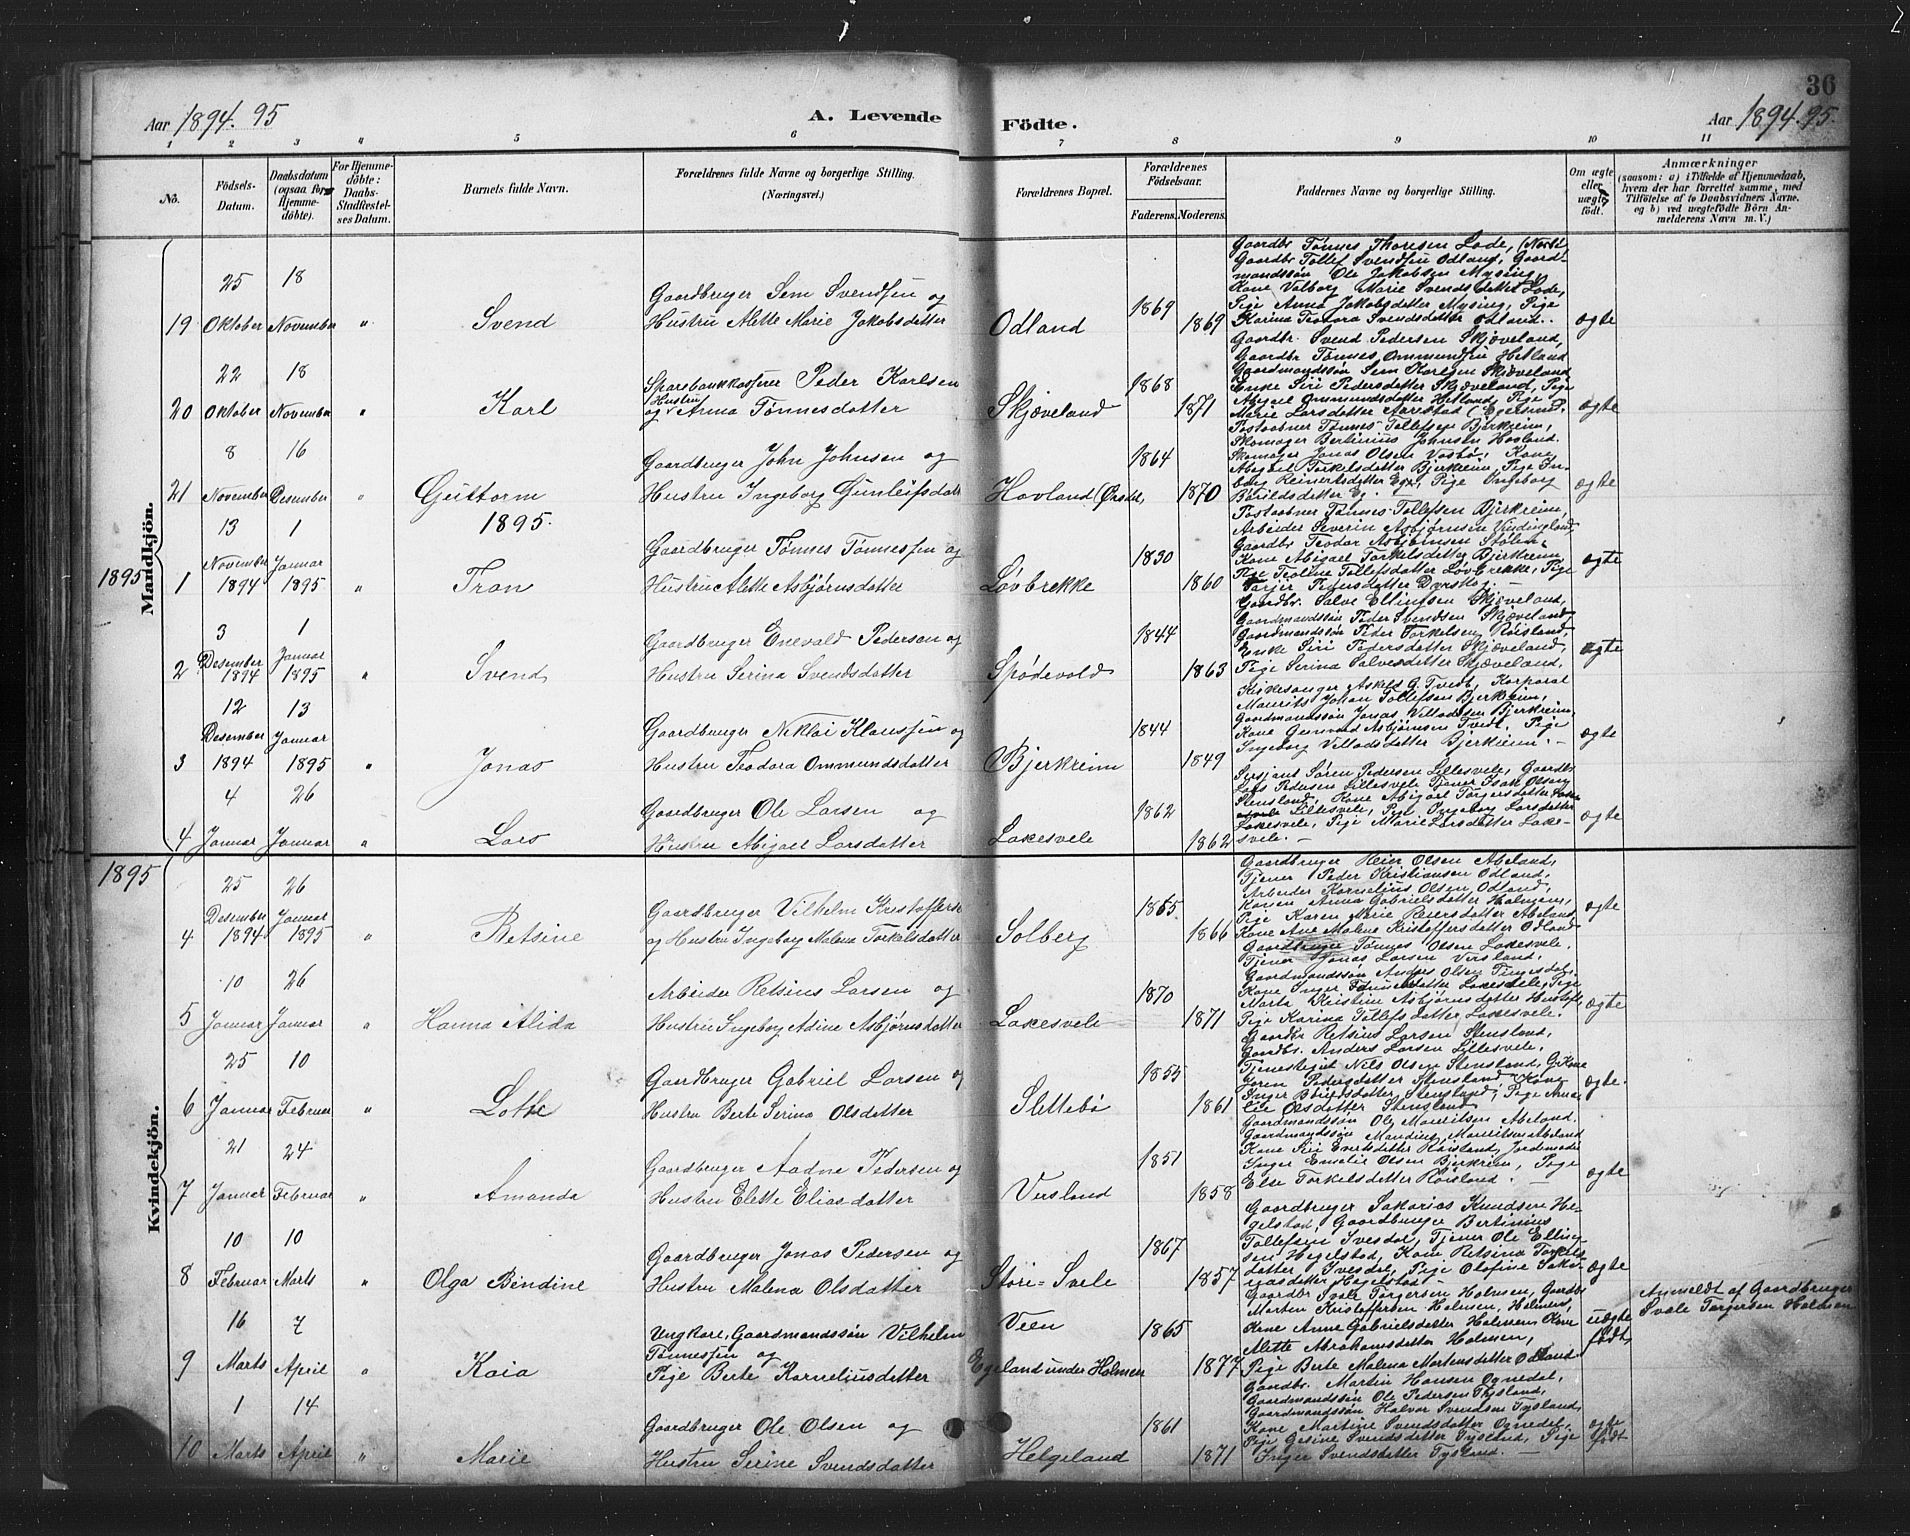 36
Aar 1894. 95
A. Levende
Födte.
Aar 1894. 95.
1 2 3 4 5 6 7 8 9 10 11
No.
Födsels-
Datum.
Daabsdatum
(ogsaa for
Hjemme-
döbte).
For Hjemme-
döbte:
Daabs-
Stadfæstel-
ses Datum.
Barnets fulde Navn.
Forældrenes fulde Navne og borgerlige Stilling.
(Næringsvei.)
Forældrenes Bopæl.
Forældrenes
Födselsaar.
Faderens. Moderens.
Faddernes Navne og borgerlige Stilling.
Om ægte
eller
uægte
födt.
Anmærkninger
(saasom: a) i Tilfælde af Hjemmedaab,
hvem der har forrettet samme, med
Tilföielse af to Daabsvidners Navne,
og b) ved uægtefödte Börn An-
melderens Navn m. V.)
Mandkjön.
19
25
Oktober
18
November
"
Svend
Gaardbruger Sem Svendsen og
Hustru Alette Marie Jakobsdatter
Odland
1869
1869
Gaardbr Tønnes Thoresen Lode,
Gaardbr Tollef Svendsen Odland, Gaard-
mandssøn Ole Jakobsen Mysing,
Kone Valborg Marie Svendsdatter Lode,
Pige Anna Jakobsdatter Mysing, Pige
Karina Teodora Svendsdatter Odland.
ægte
20
22
Oktober
18
November
"
Karl
Sparebankkasserer Peder Karlsen
og Hustru Anna Tønnesdatter
Skjæveland
1868
1871
Gaardbr. Svend Pedersen Skjæveland,
Gaardbr Tønnes Ommundsen Hetland
Gaardmandssøn Sem Karlsen Skjæveland
Enke Siri Pedersdatter Skjæveland, Pige
Abigael Ommundsdatter Hetland, Pige
Marie Larsdatter Aarestad (Egersund.
ægte
21
8
November
16
Desember
"
Guttorm
Gaardbruger John Johnsen og
Hustru Ingeborg Gunleifsdatt
Hovland (Ørsdal,
1864
1870
Postaabner Tønnes Tollefsen Bjerkreim,
Skomager Bertinius Johnsen Hovland.
Skomager Jonas Olsen Vasbø, Kone
Abigael Torkelsdatter Bjerkreim, Pige In-
borg Reinertsdatter Ege, Pige Ingeborg
Baruldsdatter Eg.
ægte
1895.
1895
1
13
November
1894
1
Januar
1895
"
Tron
Gaardbruger Tønnes Tønnessen og
Hustru Alette Asbjørnsdatter
Løvbrekke
1830
1860
Postaabner Tønnes Tollefsen Bjerkreim,
Arbeider Severin Asbjørnsen Vindingland,
Gaardbr Teodor Asbjørnsen Støle,
Kone Abigael Torkelsdatter Bjerkreim
Pige Teoline Tollefsdatter Løvbrekke, Pige
Tarjer Pedersdatter
ægte
2
3
Desember
1894
1
Januar
1895
"
Svend
Gaardbruger Enevald Pedersen og
Hustru Serina Svendsdatter
Spødevold
1844
1863
Gaardbr. Salve Ellingsen Skjæveland,
Gaardmandssøn Peder Svendsen Skjæveland,
Gaardmandssøn Peder Torkelsen Røisland,
Enke Siri Pedersdatter Skjæveland,
Pige Serina Salvesdatter Skjæveland.
ægte
3
12
Desember
1894
13
Januar
1895
"
Jonas
Gaardbruger Niklai Klaussen og
Hustru Teodora Ommundsdatter
Bjerkreim
1844
1849
Kirkesanger Askild G. Tvedt, Korporal
Maurits Johan Tollefsen Bjerkreim,
Gaardmandssøn Jonas Villadsen Bjerkreim,
Kone Gunvald Asbjørnsen Tvedt, Pige
Ingeborg Villadsdatter Bjerkreim. -
ægte
4
4
Januar
26
Januar
"
Lars
Gaardbruger Ole Larsen og
Hustru Abigael Larsdatter
Lakesvele
1862
1862
Sersjant Søren Pedersen Lillesvele, Gaardbr
Lars Pedersen Lillesvele Tjener Isak Olsen
Stensland, Kone Abigael Torgersdatter
Lillesvele, Pige Ingeborg Larsdatter
Lakesvele, Pige Marie Larsdatter Lake-
svele. -
ægte
1895
Kvindekjön.
4
25
Desember
1894
26
Januar
1895
"
Betsine
Gaardbruger Vilhelm Kristoffers
og Hustru Ingeborg Malena Torkelsdatter
Solberg
1865
1866
Gaardbruger Heir Olsen Abeland,
Tjener Peder Kristiansen Odland,
Arbeider Kornelius Olsen Odland,
Konen Anna Gabrielsdatter Holmen,
Pige Karen Marie Reiersdatter Abeland,
Kone Ane Malene Kristoffersdatter Odland
ægte
5
10
Januar
26
Januar
"
Hanna Alida
Arbeider Retsius Larsen og
Hustru Ingeborg Adine Asbjørnsdatter
Lakesvele
1870
1871
Gaardbruger Tønnes Olsen Lakesvele,
Tjener Jonas Larsen Versland,
Gaardmandssøn Anders Olsen Tinesdal,
Kone Inger Lakesvele, Pige
Marta Kristine Asbjørnsdatter
Pige Karina Tollefsdatter Lakesvele.
ægte
6
25
Januar
10
Februar
"
Lotte
Gaardbruger Gabriel Larsen og
Hustru Berte Serina Olsdatter
Slettebø
1855
1861
Gaardbr Retsius Larsen Stensland,
Gaardbr. Anders Larsen Lillesvele,
Tjenestegut Nils Olsen Stensland, G. Kone
Joren Pedersdatter Stensland, Kone
Inger Stensland, Pige Ama-
lie Olsdatter Stensland
ægte.
7
21
Januar
24
Februar
"
Amanda
Gaardbruger Aadne Pedersen og
Hustru Elette Eliasdatter
Versland
1851
1858
Gaardmandssøn Ole Mauritsen Abeland.
Gaardmandssøn Manding Mauritsen Abeland
Kone Siri Enoksdatter Røisland, Jordemoder
Inger Emelie Olsen Bjerkreim, Pige
Else Torkelsdatter Røisland. -
ægte
8
10
Februar
10
Marts
"
Olga Bendine
Gaardbruger Jonas Pedersen og
Hustru Malena Olsdatter
Store-Svele
1867
1857
Gaardbruger Sakarias Knudsen He-
gelstad, Gaardbruger Bertinius
Tollefsen Ivesdal, Tjener Ole Elling-
sen Hegelstad, Kone Retsina Torkels
datter Ivesdal, Pige Olafine Saka-
riasdatter Hegelstad -
ægte
9
16
Marts
7
April
"
Kaia
Ungkarl, Gaardmandssøn Vilhelm
Tønnessen og
Pige Berte Korneliusdatter
Veen
Egeland under Holmen
1865
1877
Gaardbr Svale Torgersen Holmen, Gaardbr
Morten Kristoffersen Holmen, Holmens,
Kone Anne Gabrielsdatter Holmen Kone
Alette Abrahamsdatter Holmen,
Pige Berte Malena Mortensdatter Odland
uægte
født,
Anmeldt af Gaardbruger
Svale Torgersen Holmen
10
1
Marts
14
April
"
Marie
Gaardbruger Ole Olsen og
Hustru Serine Svendsdatter
Helgeland
1861
1871
Gaardbr. Martin Hansen Ognedal,
Gaardmandssøn Ole Pedersen Tysland,
Gaardmandssøn Halvor Svendsen Tysland,
Kone Martine Svendsdatter Ognedal,
Pige Gesine Svendsdatter Tysland, Pige
Inger Svendsdatter Tysland. -
ægte
født